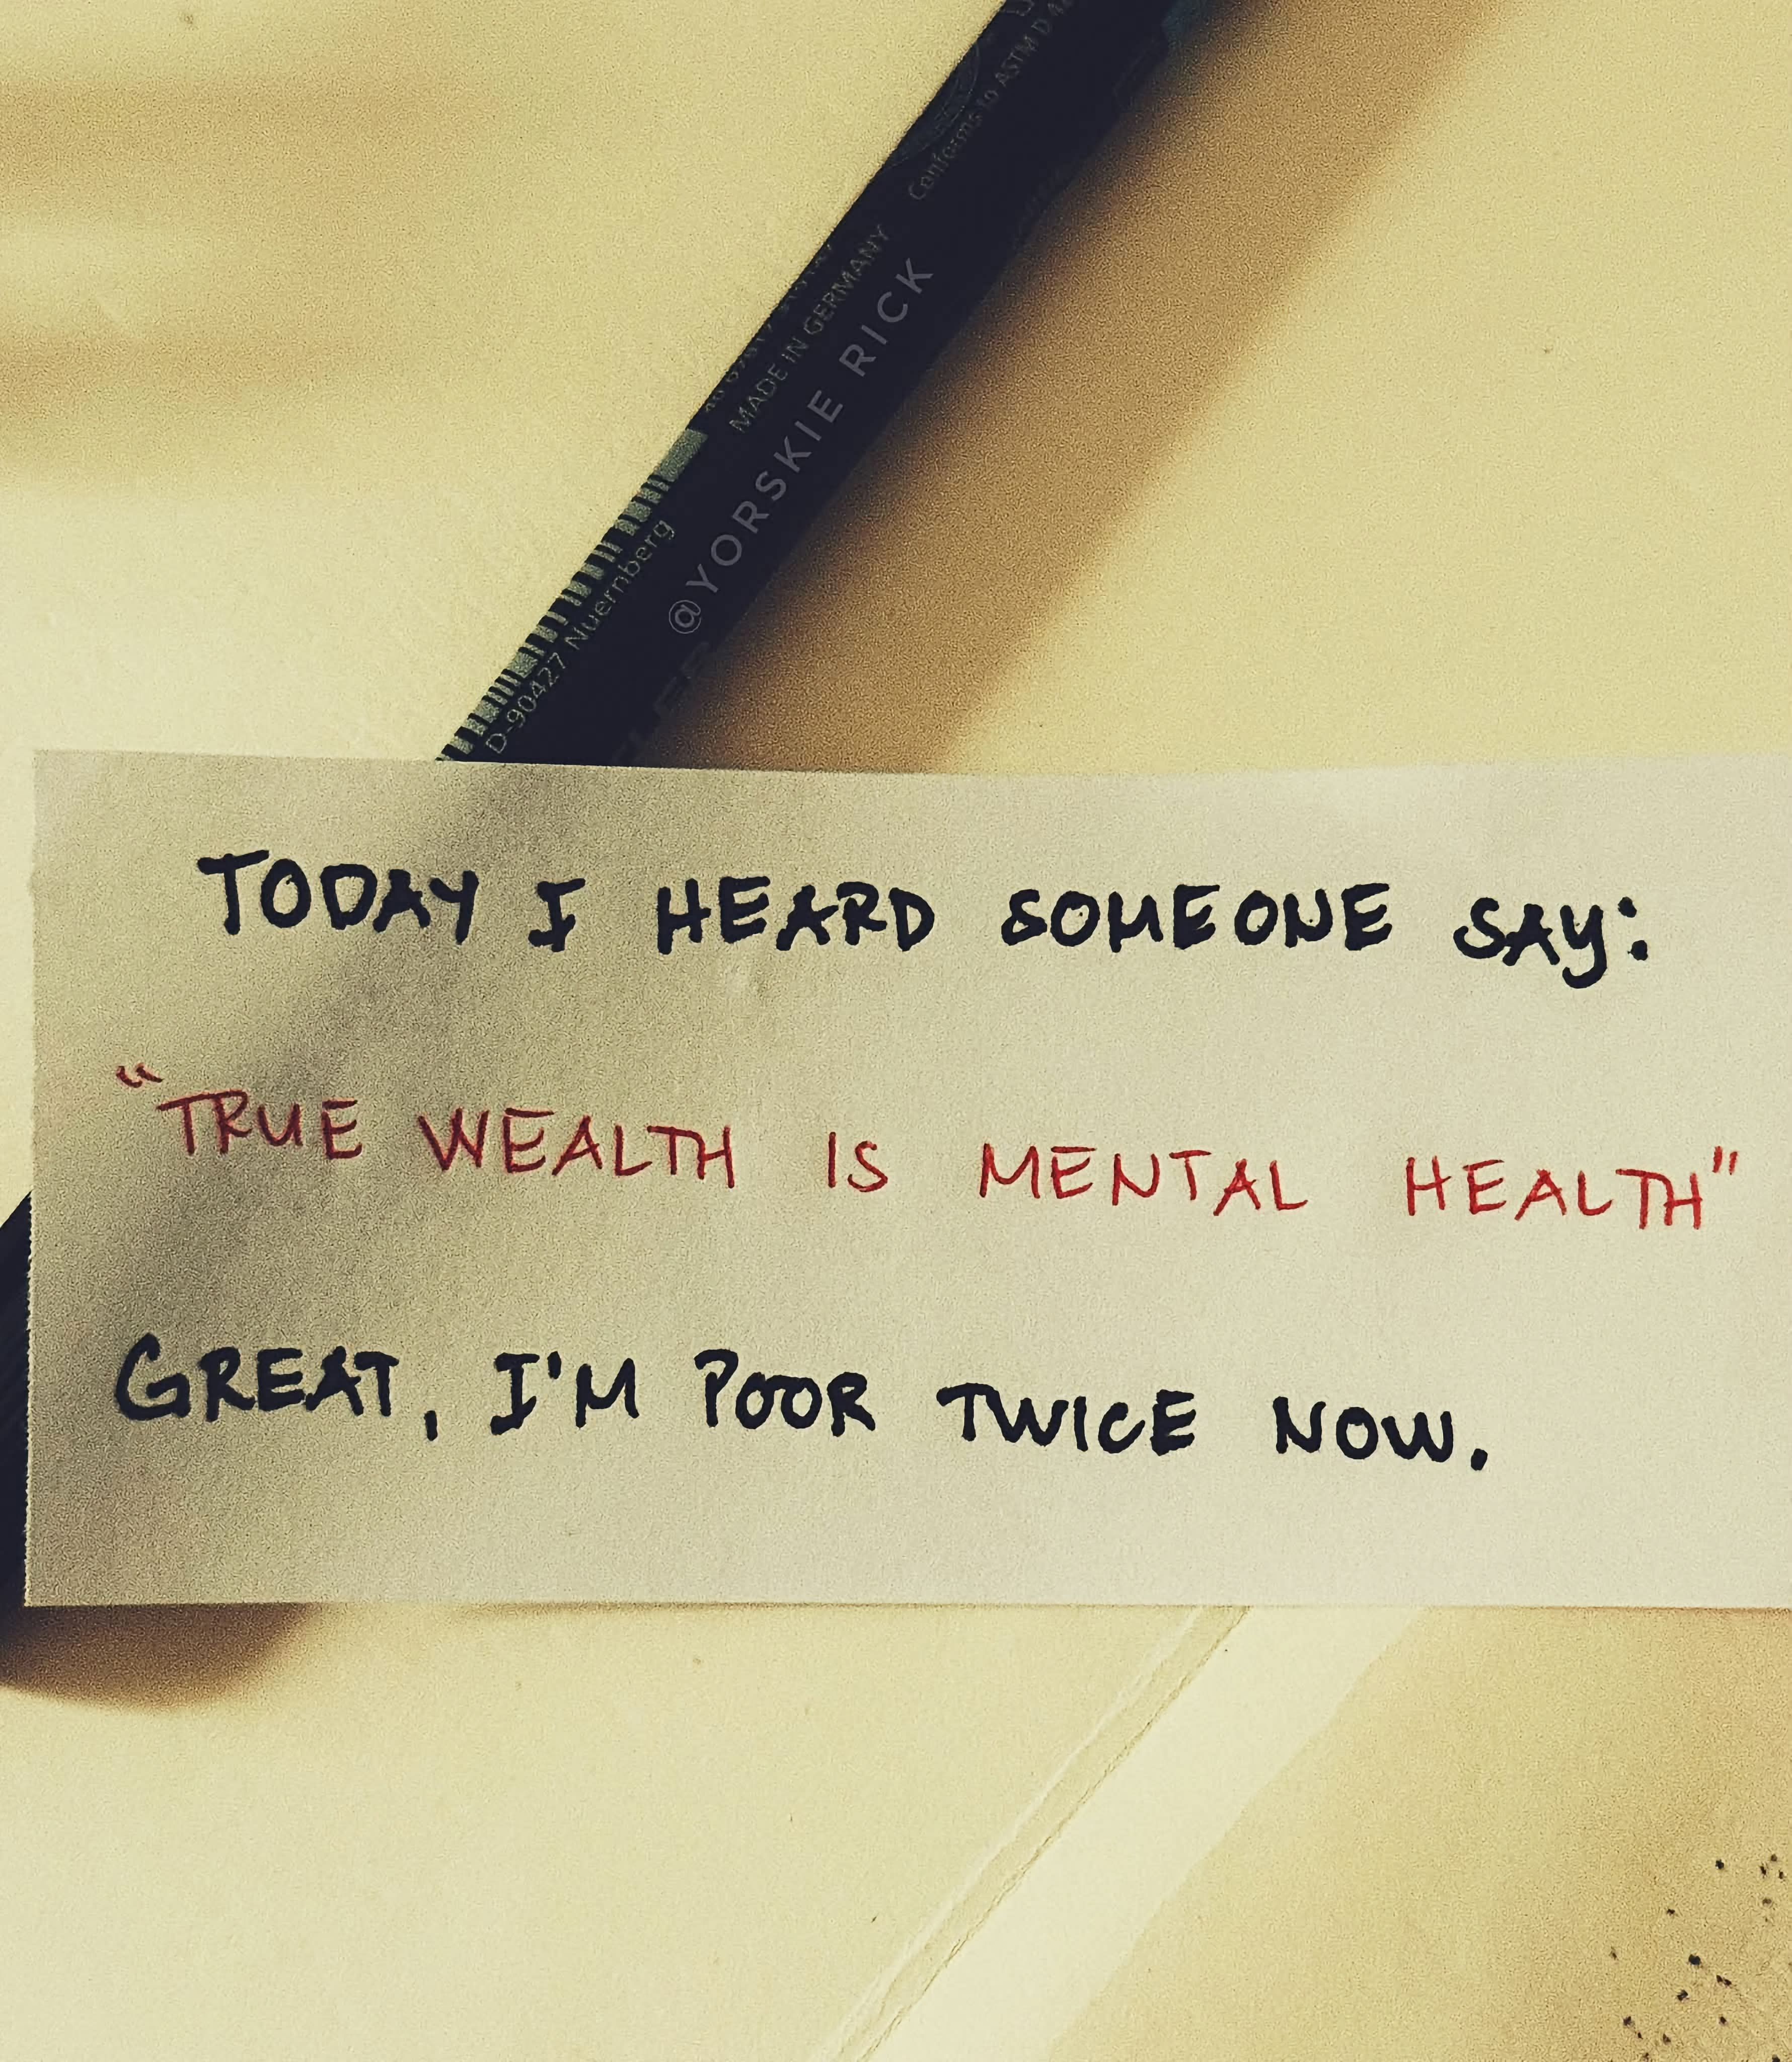 Conforms to ASTM D-42
MADE IN GERMANY
@YORSKIE RICK
D-90427 Nuernberg
TODAY I HEARD SOMEONE SAY:
"TRUE WEALTH IS MENTAL HEALTH"
GREAT, I'M POOR TWICE NOW.